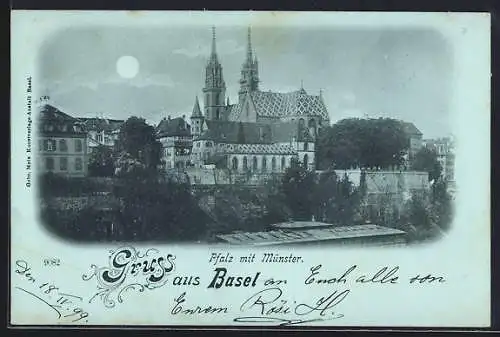 Gebr. Metz Kunstverlags-Anstalt Basel.
Pfalz mit Münster.
9082
Gruss aus Basel
an Euch alle von
Den 18. IV. 99.
Enrem Rösi H